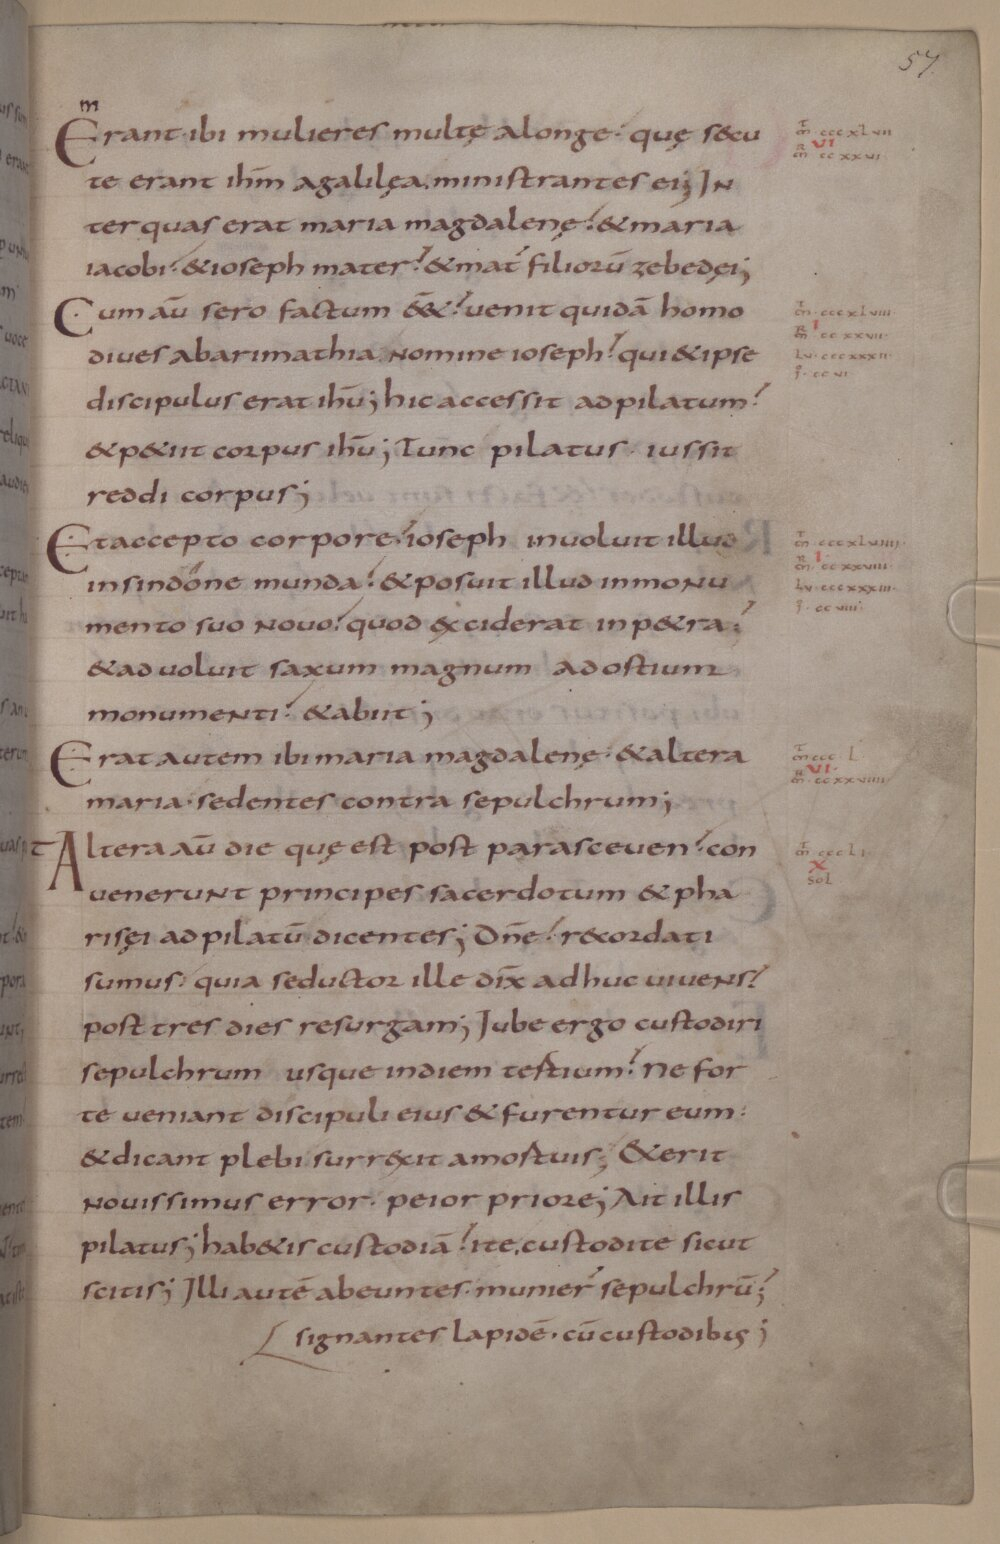 57
m
Erant ibi mulieres multę alonge· quę secu
te erant ihm̄ agalilęa. ministrantes ei; In
ter quas erat maria magdalenę· & maria
iacobi· & ioseph mater· & mat̄ filiorū zebedęi;
Cum aū sero factum ēē& · uenit quidā homo
diues abarimathia. nomine ioseph· qui & ipse
discipulus erat ihū; hic accessit adpilatum·
& p&iit corpus ihū; Tunc pilatus · iussit
reddi corpus;
Et accepto corpore· ioseph inuoluit illud
insindone munda· & posuit illud inmonu
mento suo nouo· quod exciderat inp&ra;
& aduoluit saxum magnum adostium
monumenti· & abiit;
Erat autem ibi maria magdalenę· & altera
maria· sedentes contra sepulchrum;
T Altera aū die quę est post parasceuen· con
uenerunt principes sacerdotum & pha
risęi adpilatū dicentes; Dn̄e· recordati
sumus· quia seductor ille dix̄ adhuc uiuens·
post tres dies resurgam; Iube ergo custodiri
sepulchrum usque indiem tertium· Ne for
te ueniant discipuli eius & furentur eum·
& dicant plebi surrexit amortuis; & erit
nouissimus error· peior priore; Ait illis
pilatus; hab&is custodiā· ite. custodite sicut
scitis; Illi autē abeuntes· munier̄ sepulchrū;
signantes lapidē· cū custodibus;
m̄ cccxlvii
VI
m̄ ccxxvi
m̄ cccxlviii
I
m̄ ccxxvii
Lu· cccxxxii
i· ccvi
m̄ cccxlviiii
I
m̄ ccxxviii
Lu· cccxxxiii
i· ccviii
m̄ ccc·L
VI
m̄ ccxxviiii
m̄ cccLi
X
sol